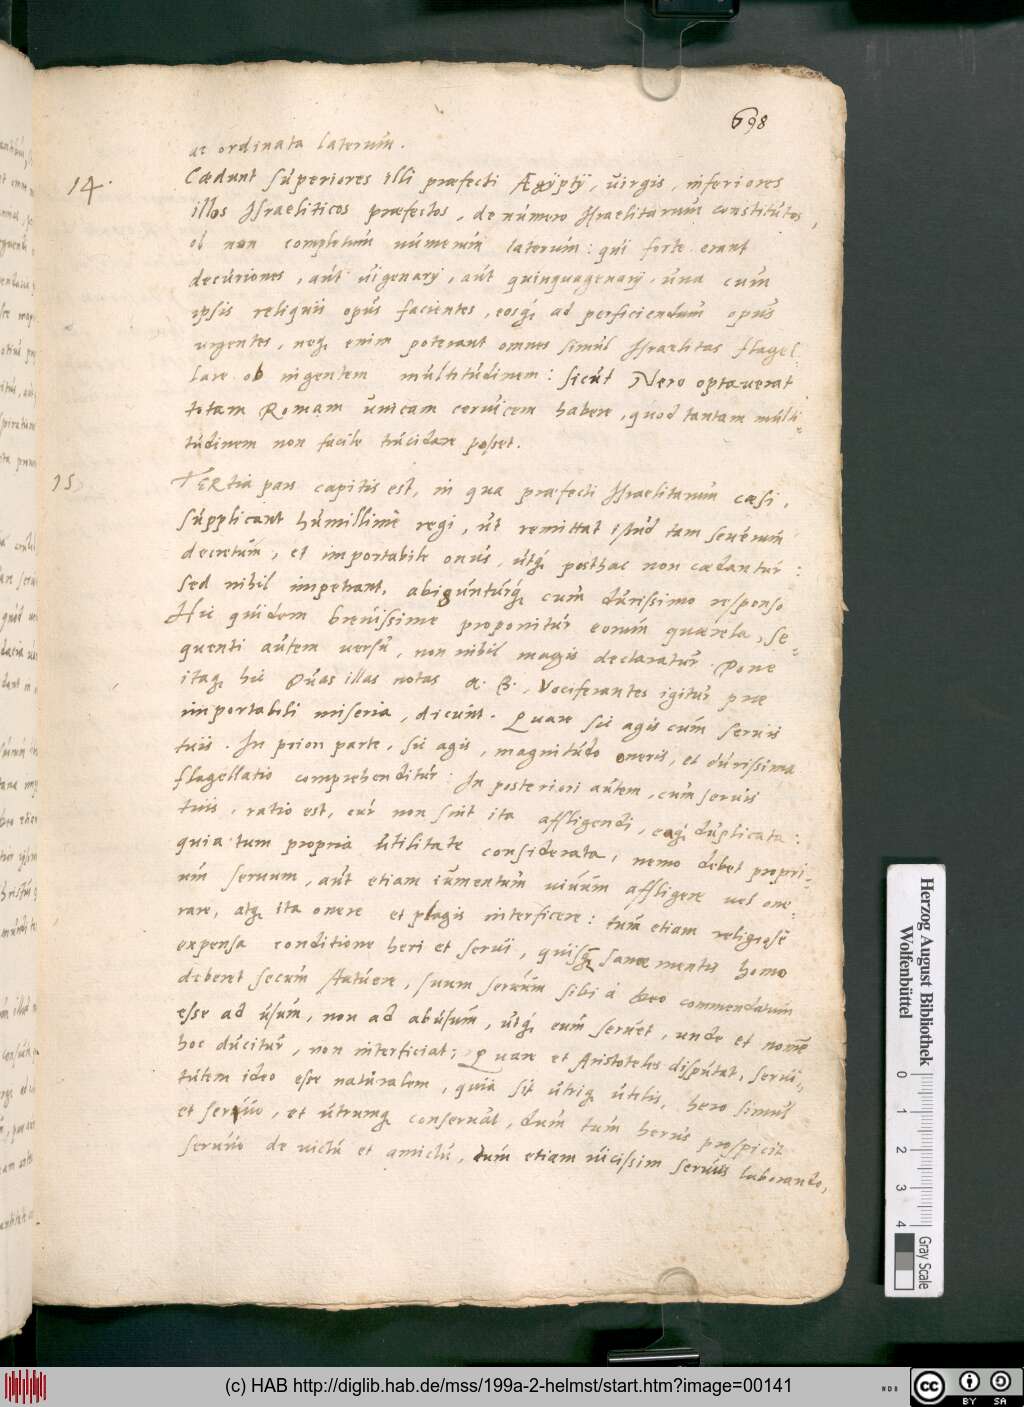 698
ac ordinata laterum.
14.
Cædunt superiores illi præfecti Ægyptij, uirgis, inferiores
illos Israeliticos præfectos, de numero Israelitarum constitutos,
ob non completum numerum laterum: qui forte erant
decuriones, aut uigenarij, aut quinquagenarij, una cum
ipsis reliquis opus facientes, eosq; ad perficiendum opus
urgentes, neq; enim poterant omnes simul Israelitas flagel-
lare ob ingentem multitudinem: sicut Nero optauerat
totam Romam unicam ceruicem habere, quod tantam multi-
tudinem non facile trucidare posset.
15
TERtia pars capitis est, in qua præfecti Israelitarum cæsi,
supplicant humillimè regi, ut remittat istud tam seuerum
decretum, et importabile onus, utq; posthac non cædantur:
sed nihil impetrant, abiguntúrq; cum durissimo responso
Hic quidem breuissime proponitur eorum quærela, se-
quenti autem uersu, non nihil magis declaratur. Pone
itaq; hic duas illas notas α. β., Vociferantes igitur præ
importabili miseria, dicunt. Quare sic agis cum seruis
tuis. In priori parte, sic agis, magnitudo oneris, et durissima
flagellatio comprehenditur: In posteriori autem, cum seruis
tuis, ratio est, cur non sint ita affligendi, eaq; duplicata:
quia tum propria utilitate considerata, nemo debet propri-
um seruum, aut etiam iumentum uiuum affligere uel one-
rare, atq; ita onere et plagis interficere: tum etiam religiosè
expensa conditione heri et serui, quisq; sanæ mentis homo
deberet secum statuere, suum seruum sibi à deo commendatum
esse ad usum, non ad abusum, utq; eum seruet, unde et nomē
hoc ducitur, non interficiat; Quare et Aristoteles disputat, serui-
tutem ideo esse naturalem, quia sit utriq; utilis, hero simul
et seruo, et utrumq; conseruat, dum tum herus prospicit
seruo de uictu et amictu, tum etiam uicissim seruus laborando,
Herzog August Bibliothek
Wolfenbüttel
0 1 2 3 4
Gray Scale
(c) HAB http://diglib.hab.de/mss/199a-2-helmst/start.htm?image=00141
cc BY SA